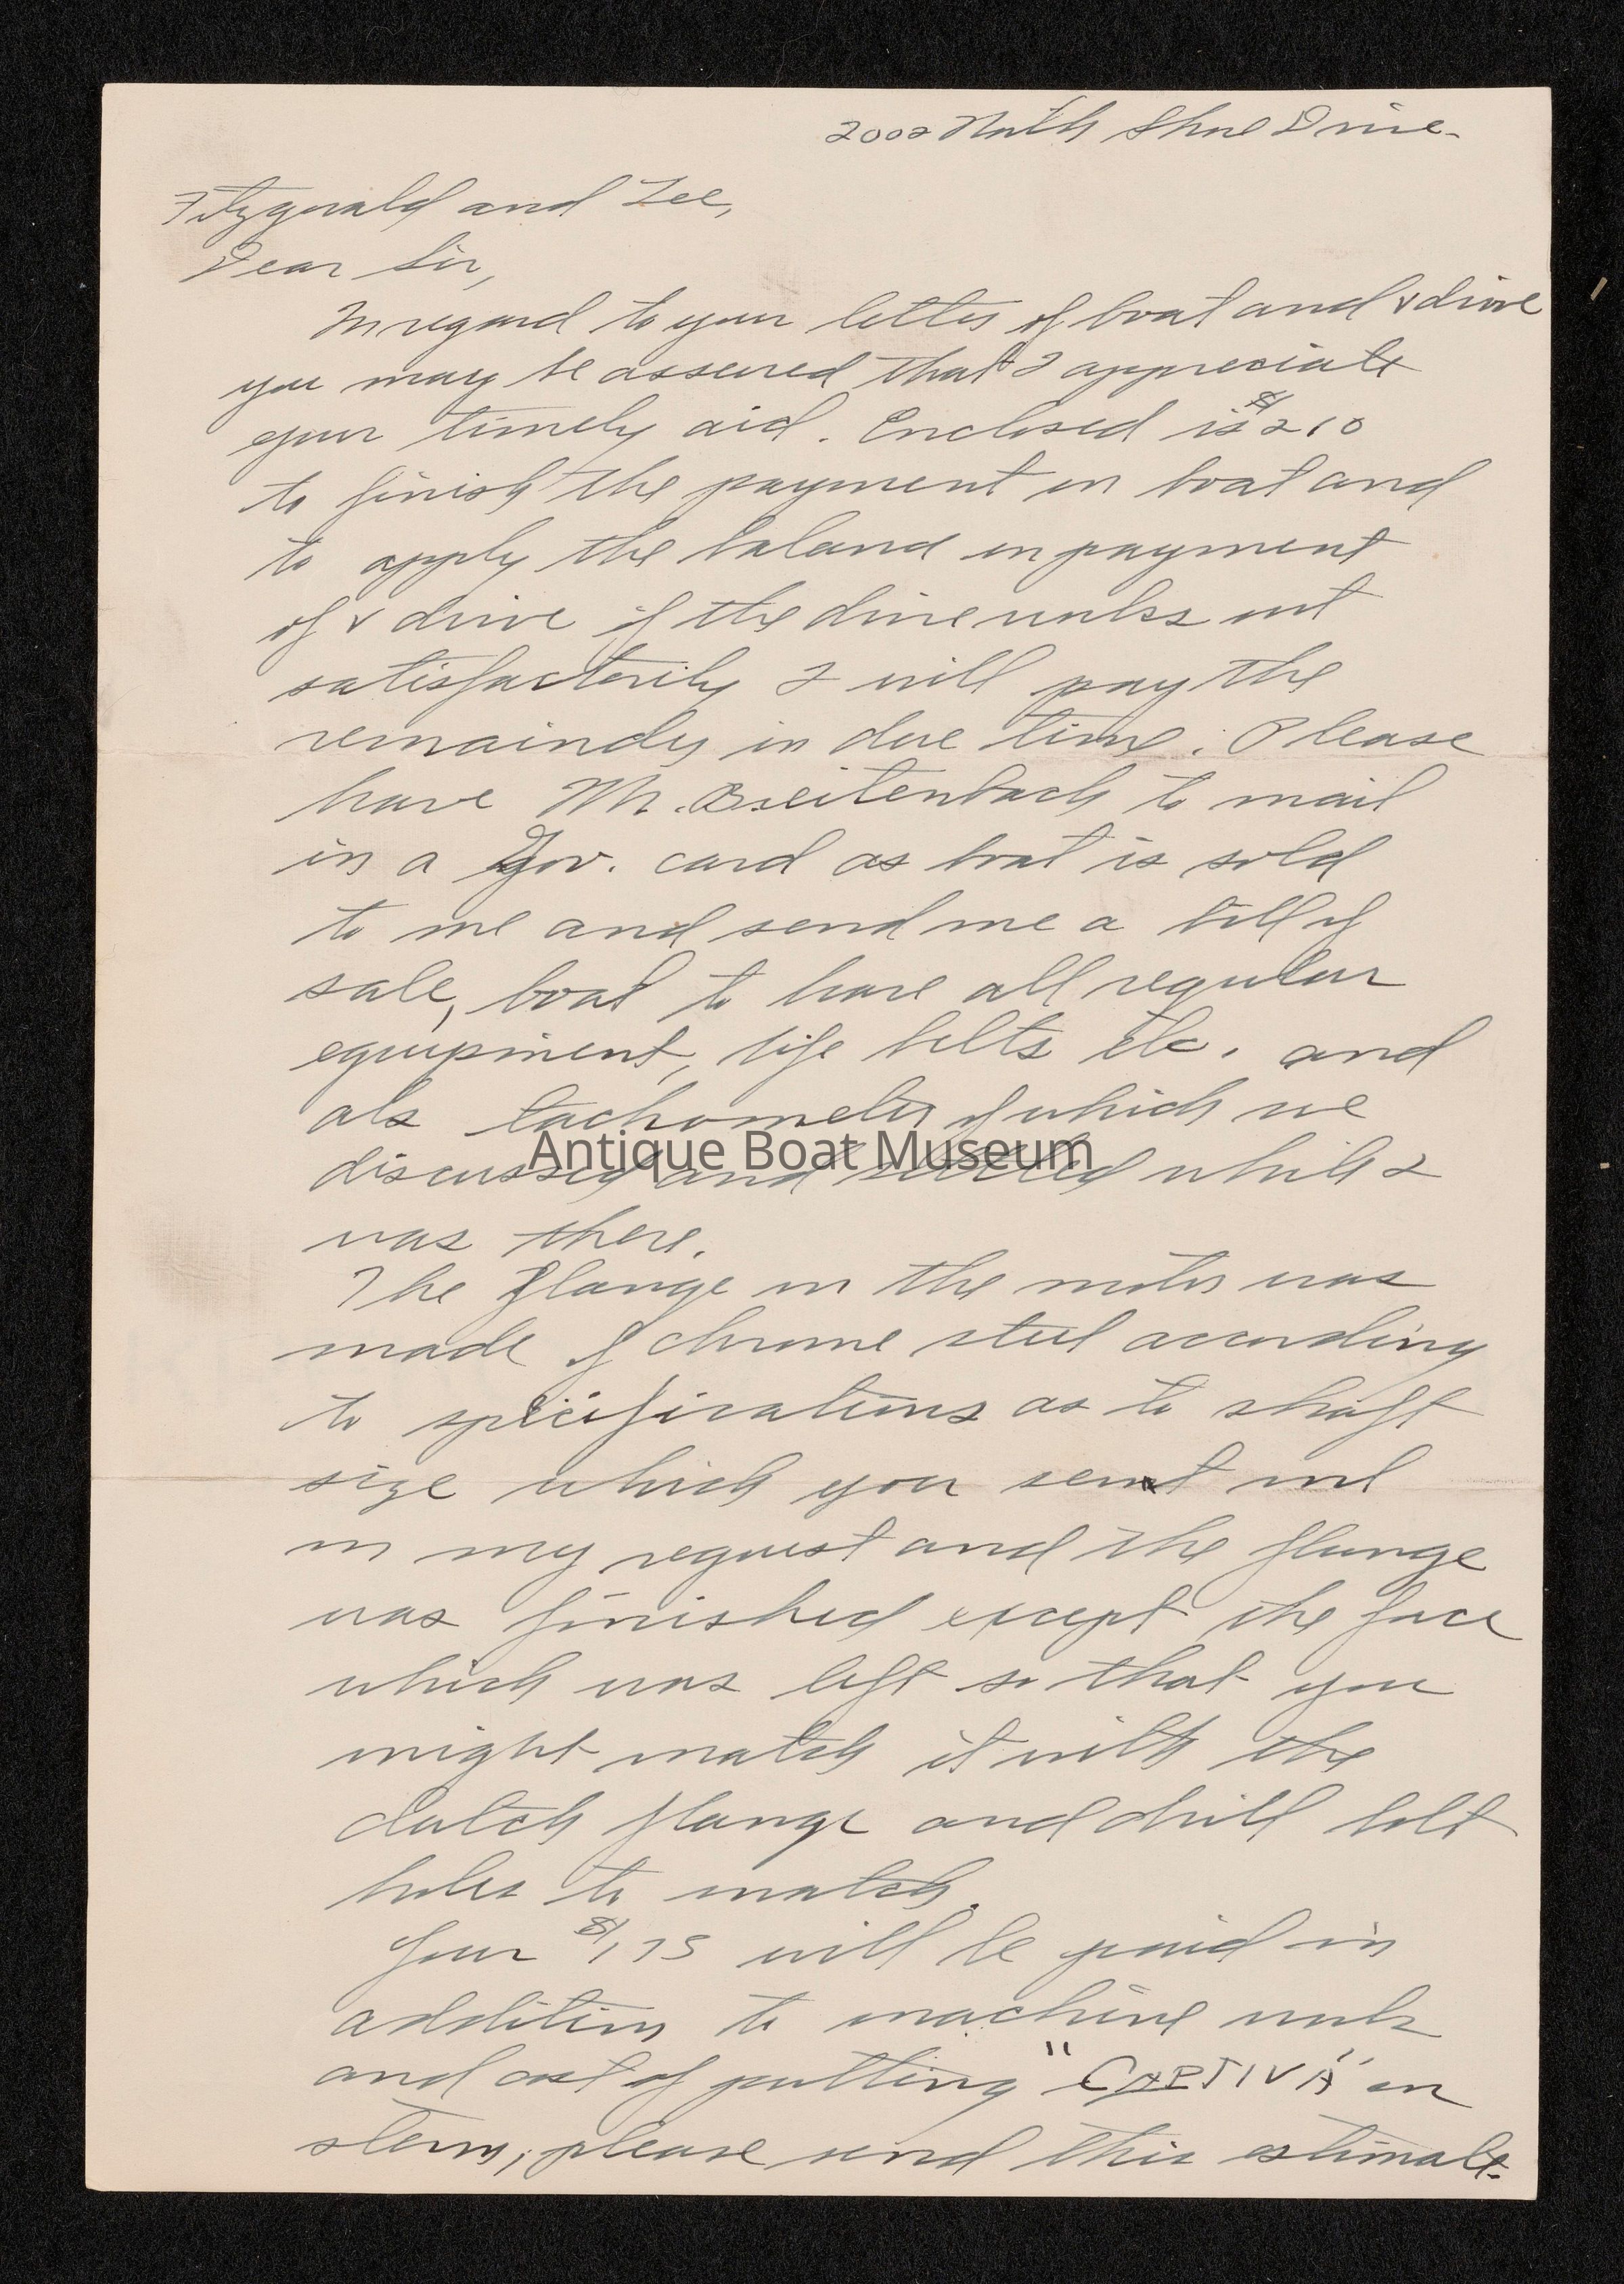 2002 North Shore Drive.
Fitzgerald and Lee,
Dear Sir,
In regard to your letter of boat and v drive
you may be assured that I appreciate
your timely aid. Enclosed is $210
to finish the payment on boat and
to apply the balance on payment
of v drive if the drive works out
satisfactorily I will pay the
remainder in due time. Please
have Mr. Breitenbach to mail
in a Gov. card as boat is sold
to me and send me a bill of
sale, boat to have all regular
equipment, life belts etc. and
also tachometer of which we
Antique Boat Museum
discussed and settled while I
was there.
The flange on the motor was
made of chrome steel according
to specifications as to shaft
size which you sent me
on my request and the flange
was finished except the face
which was left so that you
might match it with the
clutch flange and drill bolt
holes to match.
Your $175 will be paid in
addition to machine work
and cost of putting "CAPTIVA" on
stern, please send this estimate.